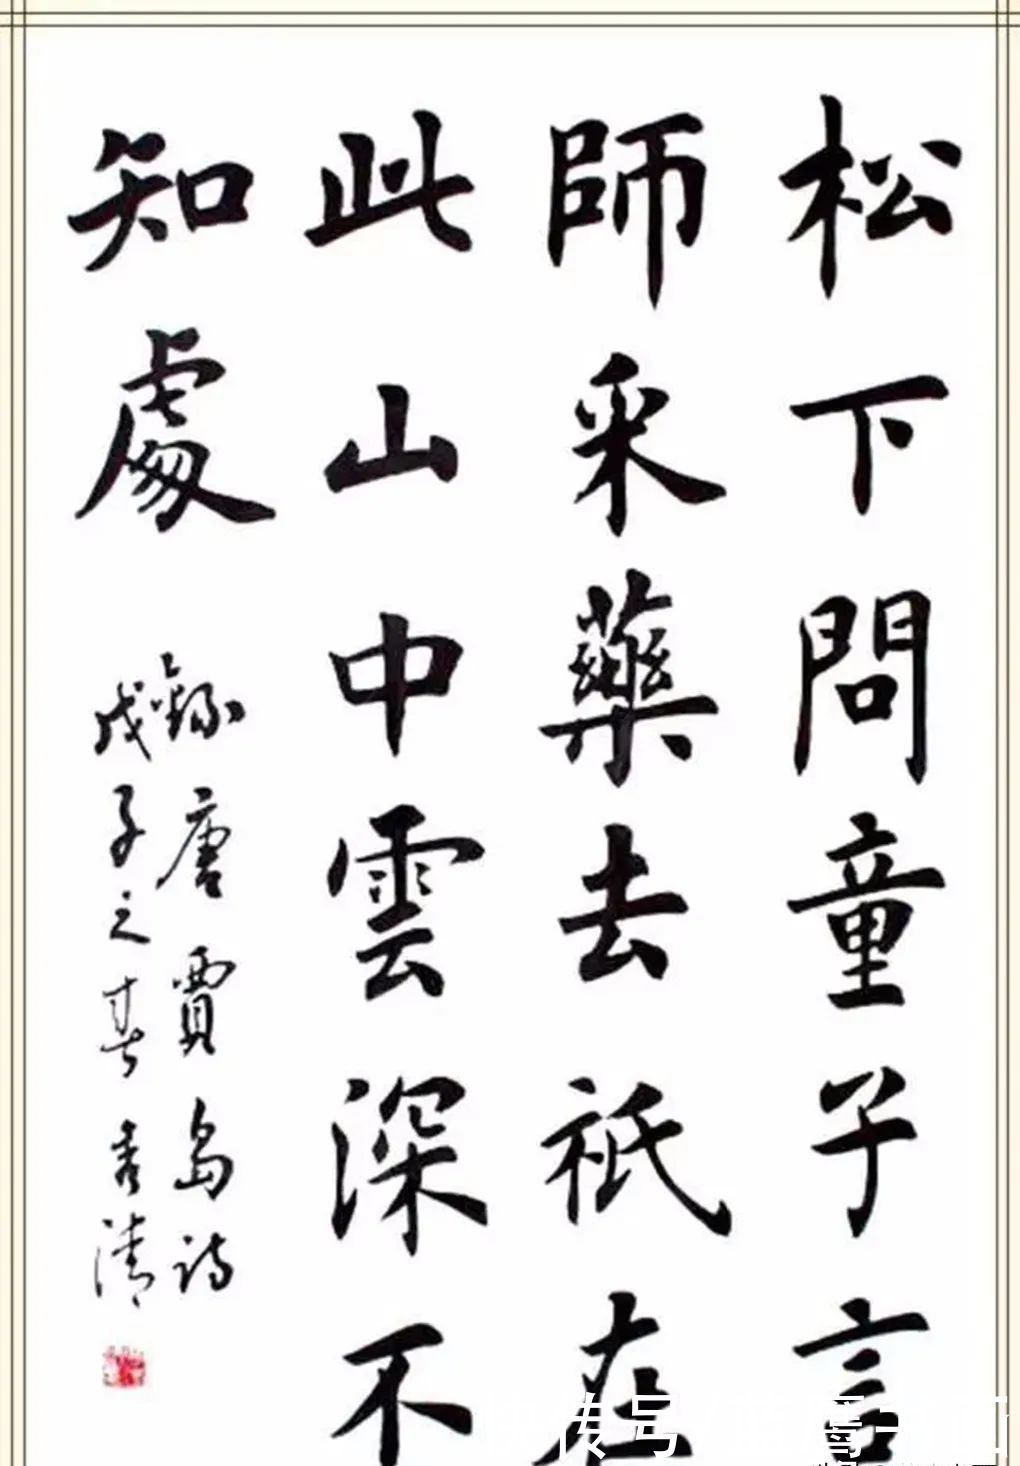 松下問童子言
師采藥去祇在
此山中雲深不
知處
錄唐賈島詩
戊子之春 秀清